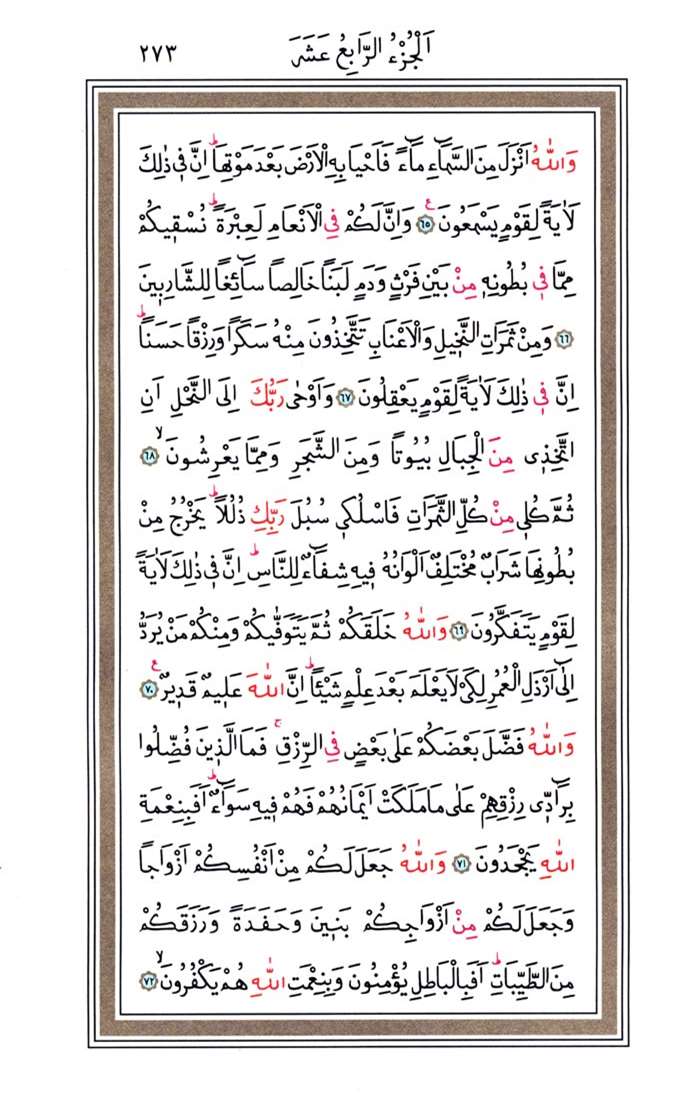 اَلْجُزْءُ الرَّابِعُ عَشَرَ ٢٧٣
وَاللّٰهُ اَنْزَلَ مِنَ السَّمَٓاءِ مَٓاءً فَاَحْيَا بِهِ الْاَرْضَ بَعْدَ مَوْتِهَاۜ اِنَّ ف۪ي ذٰلِكَ
لَاٰيَةً لِقَوْمٍ يَسْمَعُونَ۟ ﴿٦٥﴾ وَاِنَّ لَكُمْ فِي الْاَنْعَامِ لَعِبْرَةًۜ نُسْق۪يكُمْ
مِمَّا ف۪ي بُطُونِه۪ مِنْ بَيْنِ فَرْثٍ وَدَمٍ لَبَنًا خَالِصًا سَٓائِغًا لِلشَّارِب۪ينَ
﴿٦٦﴾ وَمِنْ ثَمَرَاتِ النَّخ۪يلِ وَالْاَعْنَابِ تَتَّخِذُونَ مِنْهُ سَكَرًا وَرِزْقًا حَسَنًاۜ
اِنَّ ف۪ي ذٰلِكَ لَاٰيَةً لِقَوْمٍ يَعْقِلُونَ ﴿٦٧﴾ وَاَوْحٰى رَبُّكَ اِلَى النَّحْلِ اَنِ
اتَّخِذ۪ي مِنَ الْجِبَالِ بُيُوتًا وَمِنَ الشَّجَرِ وَمِمَّا يَعْرِشُونَۙ ﴿٦٨﴾
ثُمَّ كُل۪ي مِنْ كُلِّ الثَّمَرَاتِ فَاسْلُك۪ي سُبُلَ رَبِّكِ ذُلُلًاۜ يَخْرُجُ مِنْ
بُطُونِهَا شَرَابٌ مُخْتَلِفٌ اَلْوَانُهُ ف۪يهِ شِفَٓاءٌ لِلنَّاسِۜ اِنَّ ف۪ي ذٰلِكَ لَاٰيَةً
لِقَوْمٍ يَتَفَكَّرُونَ ﴿٦٩﴾ وَاللّٰهُ خَلَقَكُمْ ثُمَّ يَتَوَفّٰيكُمْ وَمِنْكُمْ مَنْ يُرَدُّ
اِلٰٓى اَرْذَلِ الْعُمُرِ لِكَيْ لَا يَعْلَمَ بَعْدَ عِلْمٍ شَيْـًٔاۜ اِنَّ اللّٰهَ عَل۪يمٌ قَد۪يرٌ۟ ﴿٧٠﴾
وَاللّٰهُ فَضَّلَ بَعْضَكُمْ عَلٰى بَعْضٍ فِي الرِّزْقِۚ فَمَا الَّذ۪ينَ فُضِّلُوا
بِرَٓادّ۪ي رِزْقِهِمْ عَلٰى مَا مَلَكَتْ اَيْمَانُهُمْ فَهُمْ ف۪يهِ سَوَٓاءٌۜ اَفَبِنِعْمَةِ
اللّٰهِ يَجْحَدُونَ ﴿٧١﴾ وَاللّٰهُ جَعَلَ لَكُمْ مِنْ اَنْفُسِكُمْ اَزْوَاجًا
وَجَعَلَ لَكُمْ مِنْ اَزْوَاجِكُمْ بَن۪ينَ وَحَفَدَةً وَرَزَقَكُمْ
مِنَ الطَّيِّبَاتِۜ اَفَبِالْبَاطِلِ يُؤْمِنُونَ وَبِنِعْمَتِ اللّٰهِ هُمْ يَكْفُرُونَۙ ﴿٧٢﴾